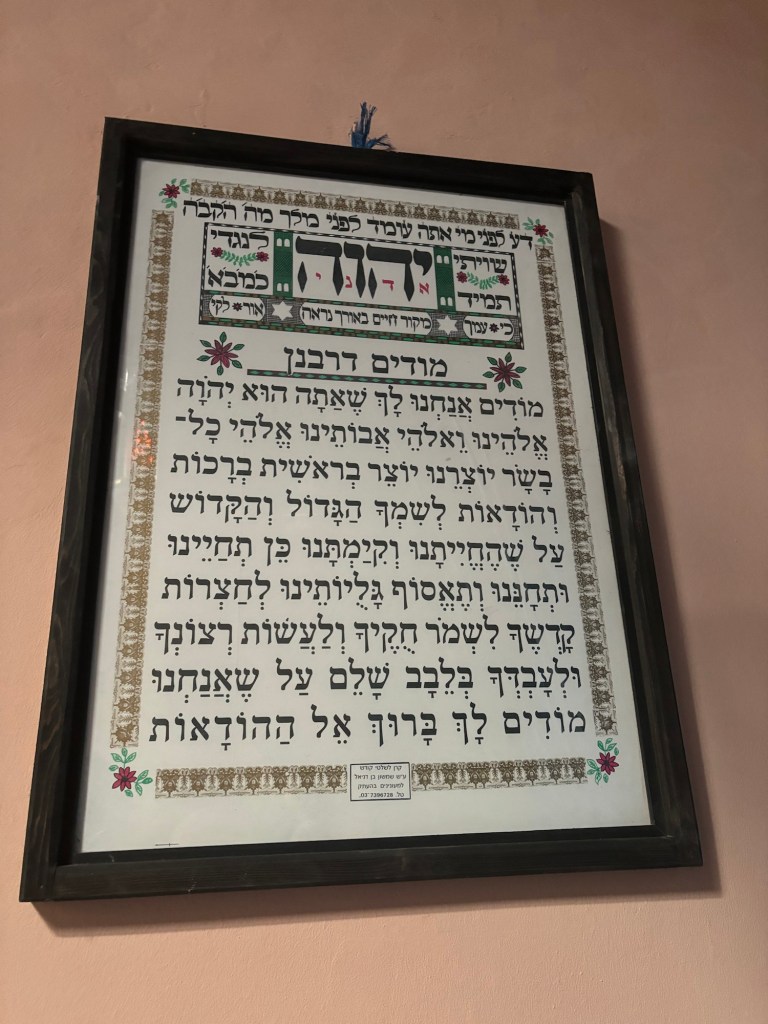 דע לפני מי אתה עומד לפני מלך מה הקבה
שויתי יהוה לנגדי
אדני
תמיד כמבא
כי עמך מקור חיים באורך נראה אור לקי
מודים דרבנן
מוֹדִים אֲנַחְנוּ לָךְ שֶׁאַתָּה הוּא יְהֹוָה
אֱלֹהֵינוּ וֵאלֹהֵי אֲבוֹתֵינוּ אֱלֹהֵי כָל־
בָּשָׂר יוֹצְרֵנוּ יוֹצֵר בְּרֵאשִׁית בְּרָכוֹת
וְהוֹדָאוֹת לְשִׁמְךָ הַגָּדוֹל וְהַקָּדוֹשׁ
עַל שֶׁהֶחֱיִיתָנוּ וְקִיַּמְתָּנוּ כֵּן תְּחַיֵּינוּ
וּתְחָנֵּנוּ וְתֶאֱסוֹף גָּלֻיּוֹתֵינוּ לְחַצְרוֹת
קָדְשֶׁךָ לִשְׁמֹר חֻקֶּיךָ וְלַעֲשׂוֹת רְצוֹנְךָ
וּלְעָבְדְּךָ בְּלֵבָב שָׁלֵם עַל שֶׁאֲנַחְנוּ
מוֹדִים לָךְ בָּרוּךְ אֵל הַהוֹדָאוֹת
קרן לשלטי קודש
ע״ש שמשון בן דניאל
למעונינים בהעתק
טל. 03-7396728